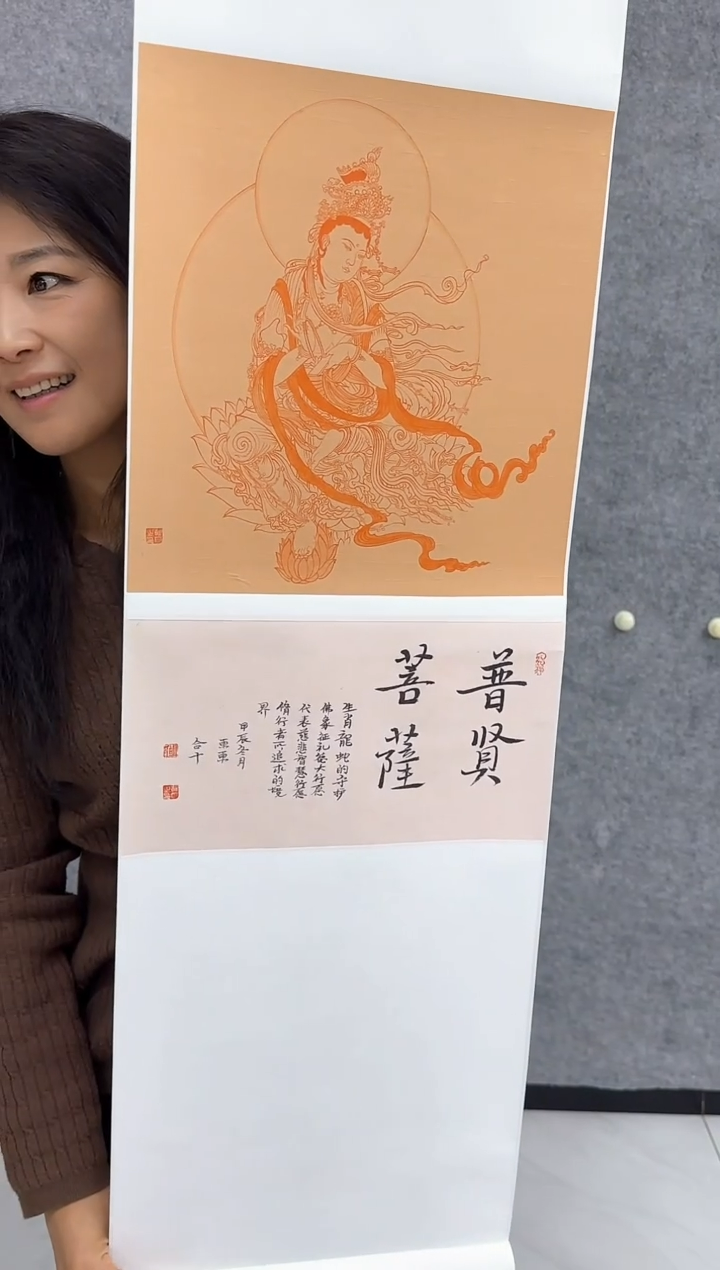 普贤
菩薩
生肖龍蛇的守护
佛象征礼德大行愿
代表慈悲智慧行愿
脩行者所追求的境
界
甲辰冬月
合十